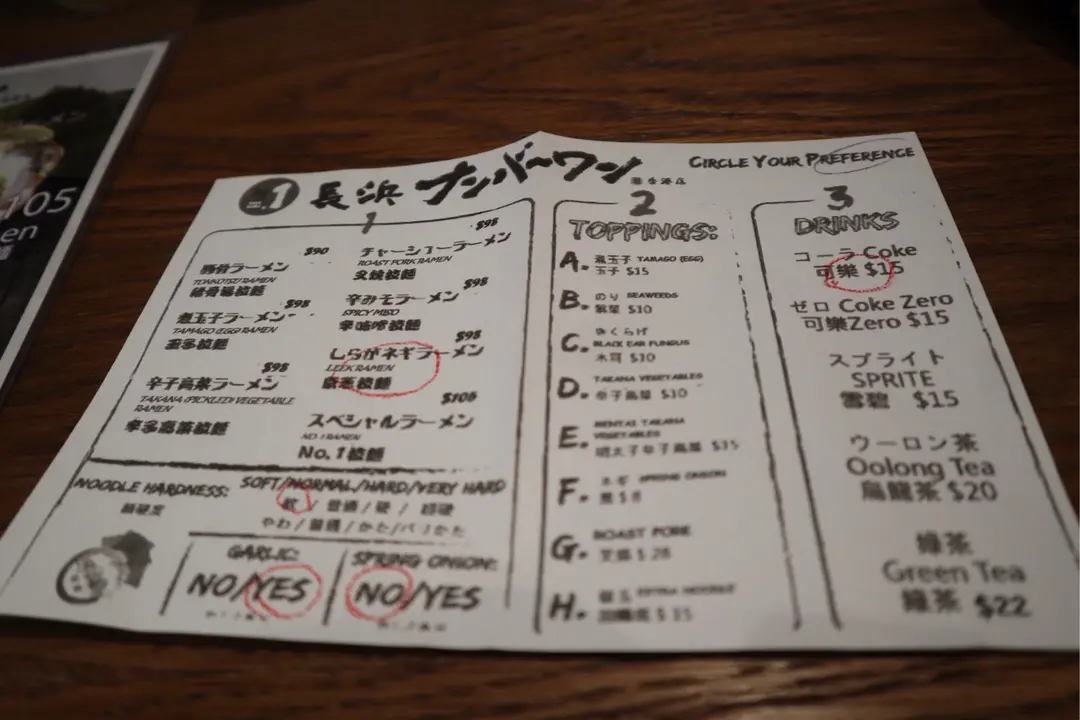 105
en
No.1 長浜 ナンバーワン 香港店
CIRCLE YOUR PREFERENCE
1
$90
豚骨ラーメン
TONKOTSU RAMEN
$98
チャーシューラーメン
ROAST PORK RAMEN
叉燒拉麵
$98
煮玉子ラーメン
TAMAGO (EGG) RAMEN
玉子拉麵
$98
辛みそラーメン
SPICY MISO
辛味噌拉麵
$98
辛子高菜ラーメン
TAKANA (PICKLED) VEGETABLE
RAMEN
$98
しらがネギラーメン
LEEK RAMEN
京葱拉麵
$106
スペシャルラーメン
NO.1 RAMEN
No.1拉麵
NOODLE HARDNESS: SOFT/NORMAL/HARD/VERY HARD
麵硬度
軟 / 普通 / 硬 / 超硬
やわ / 普通 / かた / バリかた
GARLIC:
NO/YES
SPRING ONION:
NO/YES
2
TOPPINGS:
A. 煮玉子 TAMAGO (EGG)
玉子 $15
B. のり SEAWEEDS
紫菜 $10
C. きくらげ
BLACK EAR FUNGUS
木耳 $10
D. TAKANA VEGETABLES
辛子高菜 $10
E. MENTAI TAKANA
VEGETABLES
明太子辛子高菜 $15
F. ネギ SPRING ONION
葱 $8
G. ROAST PORK
叉燒 $28
H. 替玉 EXTRA NOODLE
加麵底 $15
3
DRINKS
コーラ Coke
可樂 $15
ゼロ Coke Zero
可樂Zero $15
スプライト
SPRITE
雪碧 $15
ウーロン茶
Oolong Tea
烏龍茶 $20
緑茶
Green Tea
緑茶 $22